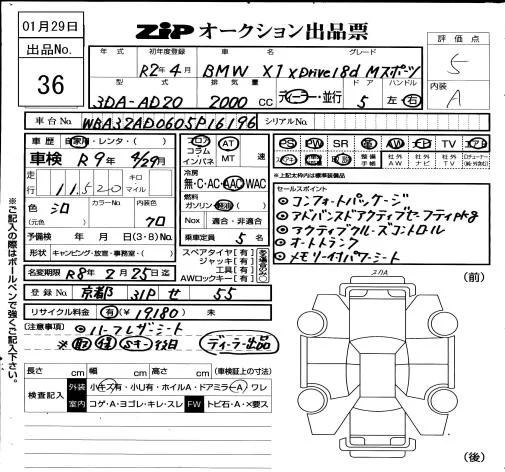 01月29日
出品No.
36
ZIP オークション出品票
年式 初年度登録 車名 グレード
R2年4月 BMW X1 xDrive18d Mスポーツ
評価点
5
内装
A
型式 排気量 ドア ハンドル
3DA-AD20 2000 CC ディーラー・並行 5 左・右
車台No. WBA32AD0605P16196 シリアルNo.
車歴 自家用・レンタ・( )
車検 R9年4/29月
走行 11,520 キロ マイル
色 シロ カラーNo. 内装色 クロ
(元色)
予備検 年 月 日 (3・8)No.
形状 キャンピング・放送・事務室・( )
名変期限 R8年2月25日迄
フロア コラム インパネ AT MT 速
冷房
無・C・AC・AAC・WAC
燃料
ガソリン・軽油・( )
Nox 適合・非適合
乗車定員 5名
スペアタイヤ[有]
ジャッキ[有]
工具[有]
AWロックキー[有]
PS PW SR 革 AW ナビ TV エアB
整備手帳 社外AW 社外ナビ 社外TV
※上記太枠内は標準装備品
セールスポイント
コンフォートパッケージ
アドバンスドアクティブセーフティpkg
アクティブクルーズコントロール
オートトランク
メモリー付パワーシート
登録No. 京都 31P せ 55
リサイクル料金 有 (¥19,180) 未
(注意事項) ハーフレザーシート
※取 保 Sキー 後日 ディーラー出品
長さ cm 幅 cm 高さ cm (車検証上の寸法)
検査記入
外装 小キズ有・小U有・ホイルA・ドアミラー(A) ワレ
室内 コゲ・A・ヨゴレ・キレ・スレ FW トビ石・A・×要ス
(前)
(後)
※ご記入の際はボールペンで強くご記入下さい。